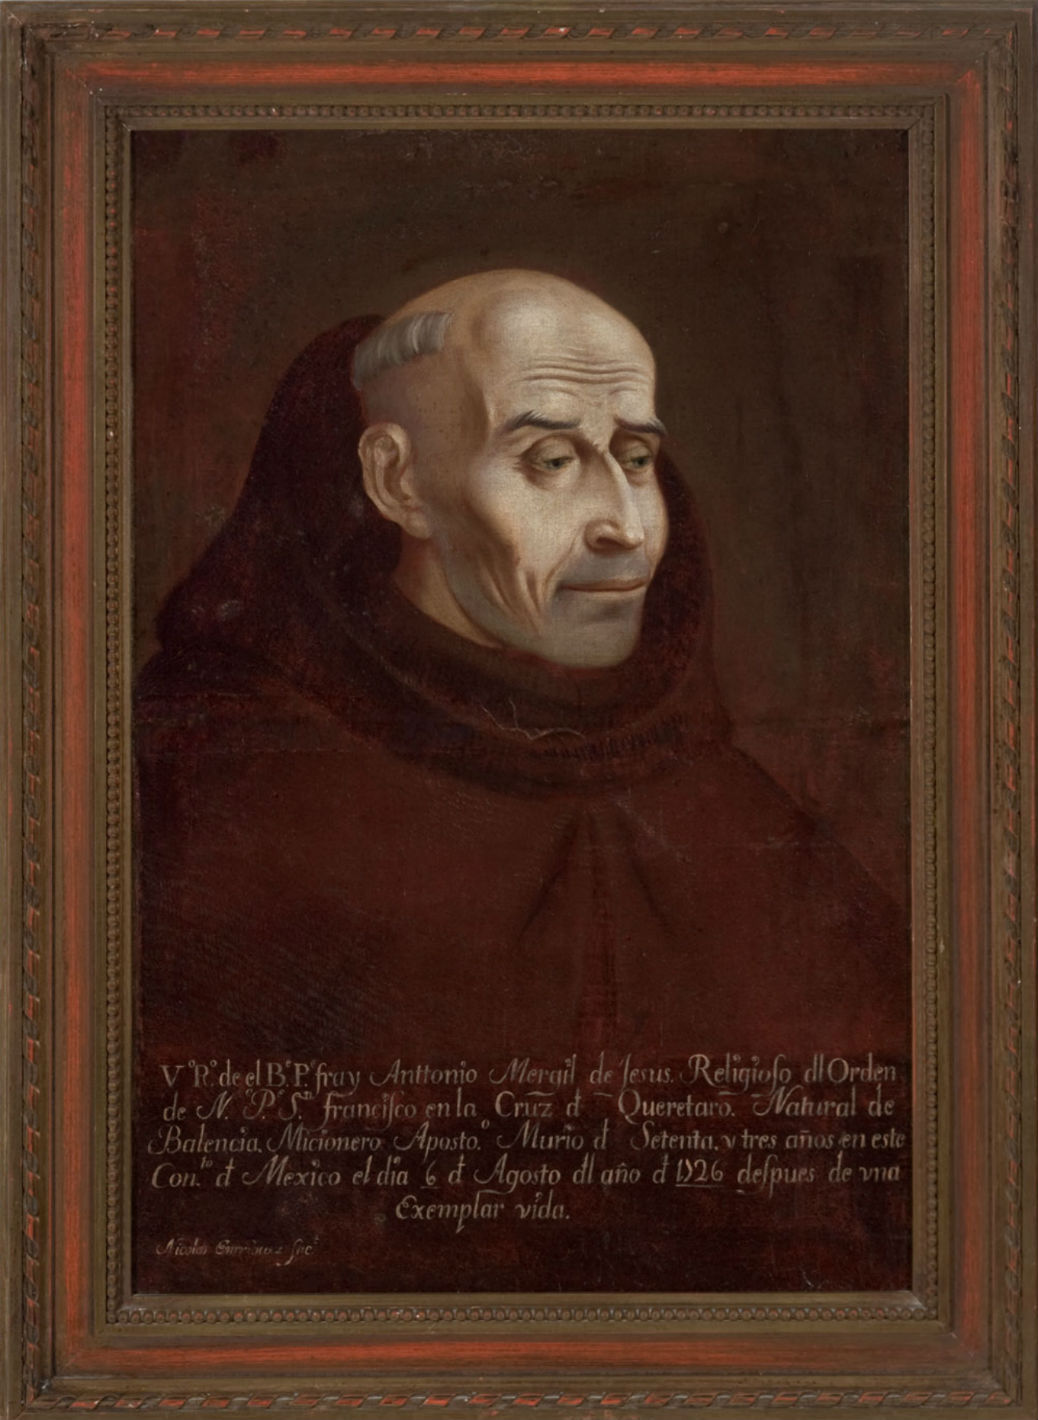 V.º R.º de el B.º P.º fray Anttonio Mergil de Jesus. Religioſo dl Orden
de N. P. S.n franciſco en la Cruz d Queretaro. Natural de
Balencia, Micionero Aposto.º Murio d Setenta, y tres años en este
Con.to d Mexico el dia 6 d Agosto dl año d 1726 deſpues de vna
Exemplar vida.
Nicolas Enriquez fec.t